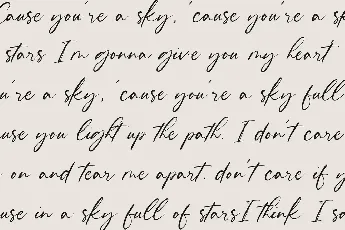 Cause you're a sky, 'cause you're a sk
stars I'm gonna give you my heart
u're a sky, 'cause you're a sky full
use you light up the path. I don't care
on and tear me apart, don't care if y
use in a sky full of stars I think I sa